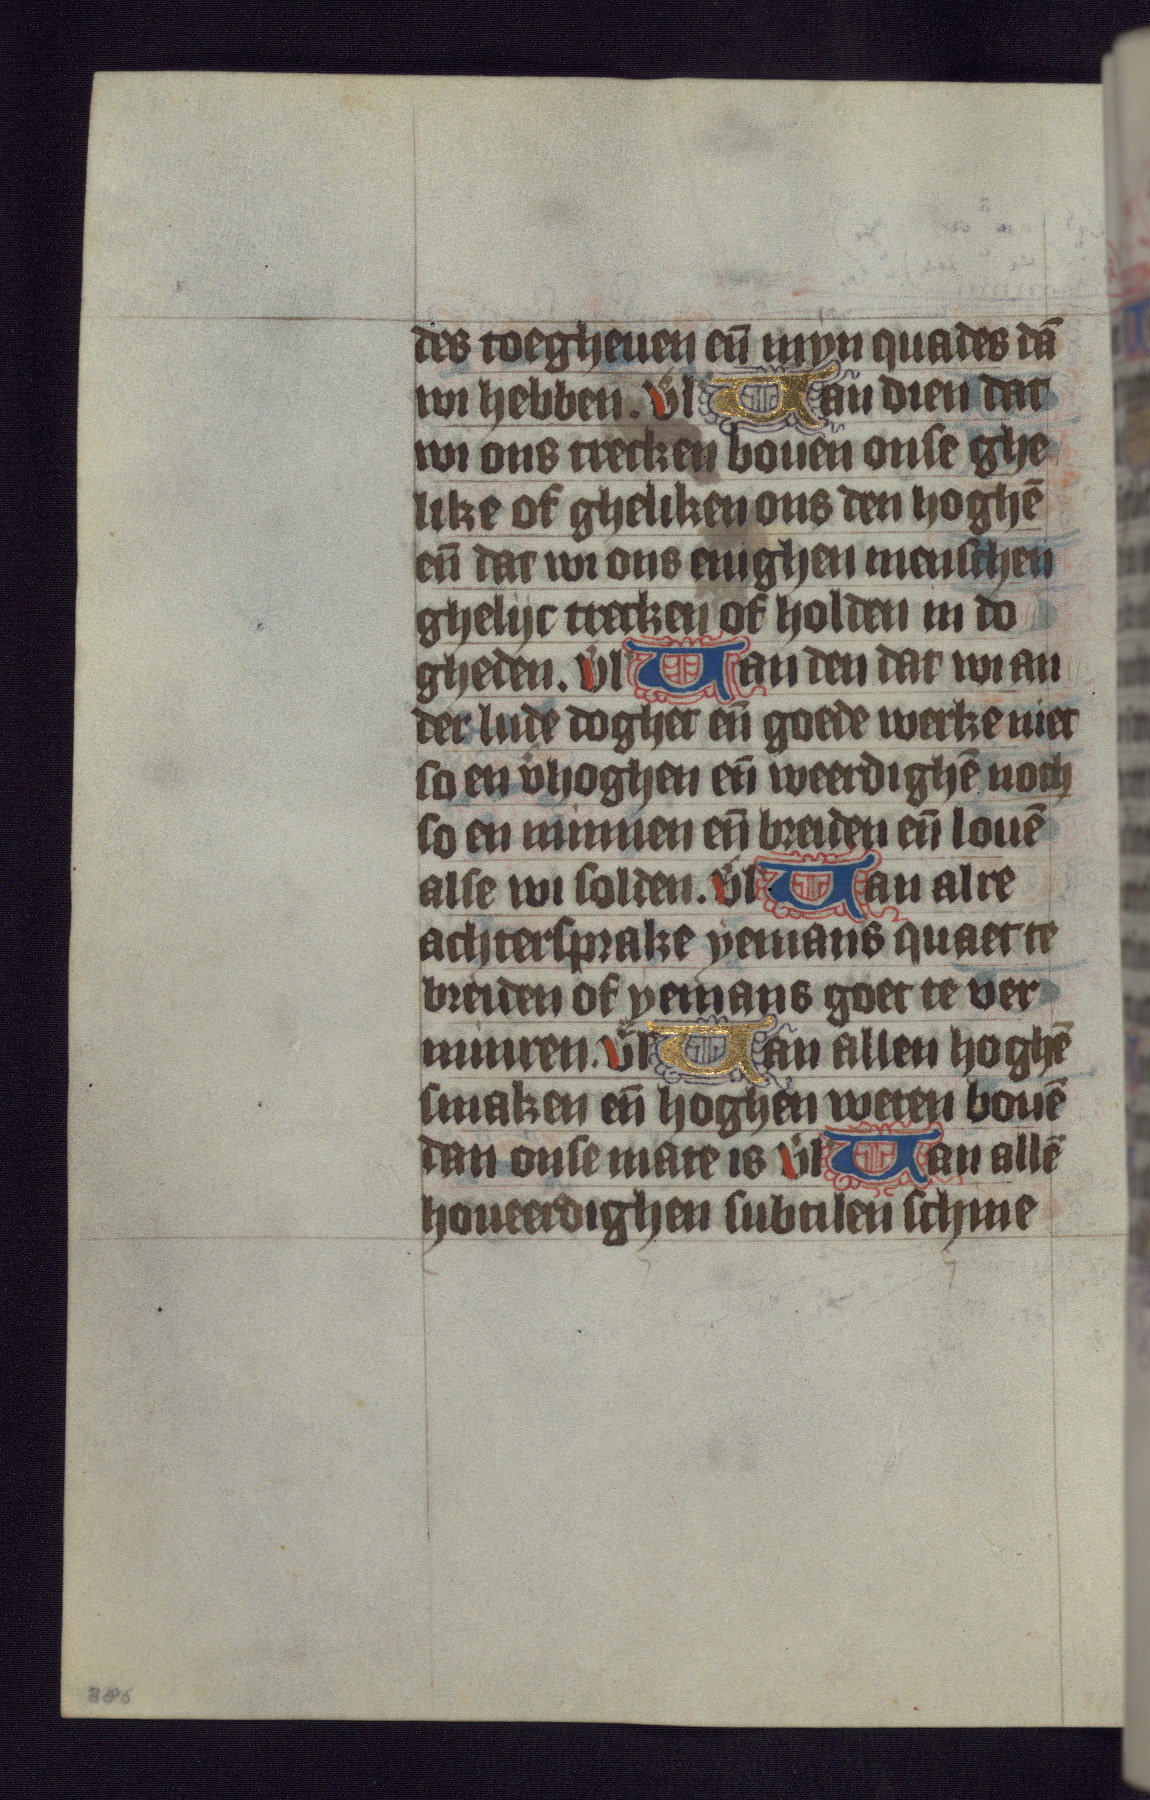 des toegheuen en̄ myn quades dā
wi hebben. v̾l Van dien dat
wi ons trecken bouen onse ghe
like of gheliken ons den hoghē
en̄ dat wi ons enighen menschen
ghelijc trecken of holden in do
gheden. v̾l Van den dat wi an
der lude doghet en̄ goede werke niet
so en v̾hoghen en̄ weerdighē noch
so en minnen en̄ breiden en̄ louē
alse wi solden. v̾l Van alre
achtersprake yemans quaet te
breiden of yemans goet te ver
minren. v̾l Van allen hoghē
smaken en̄ hoghen weten bouē
dan onse mate is v̾l Van allē
houeerdighen subtilen schine